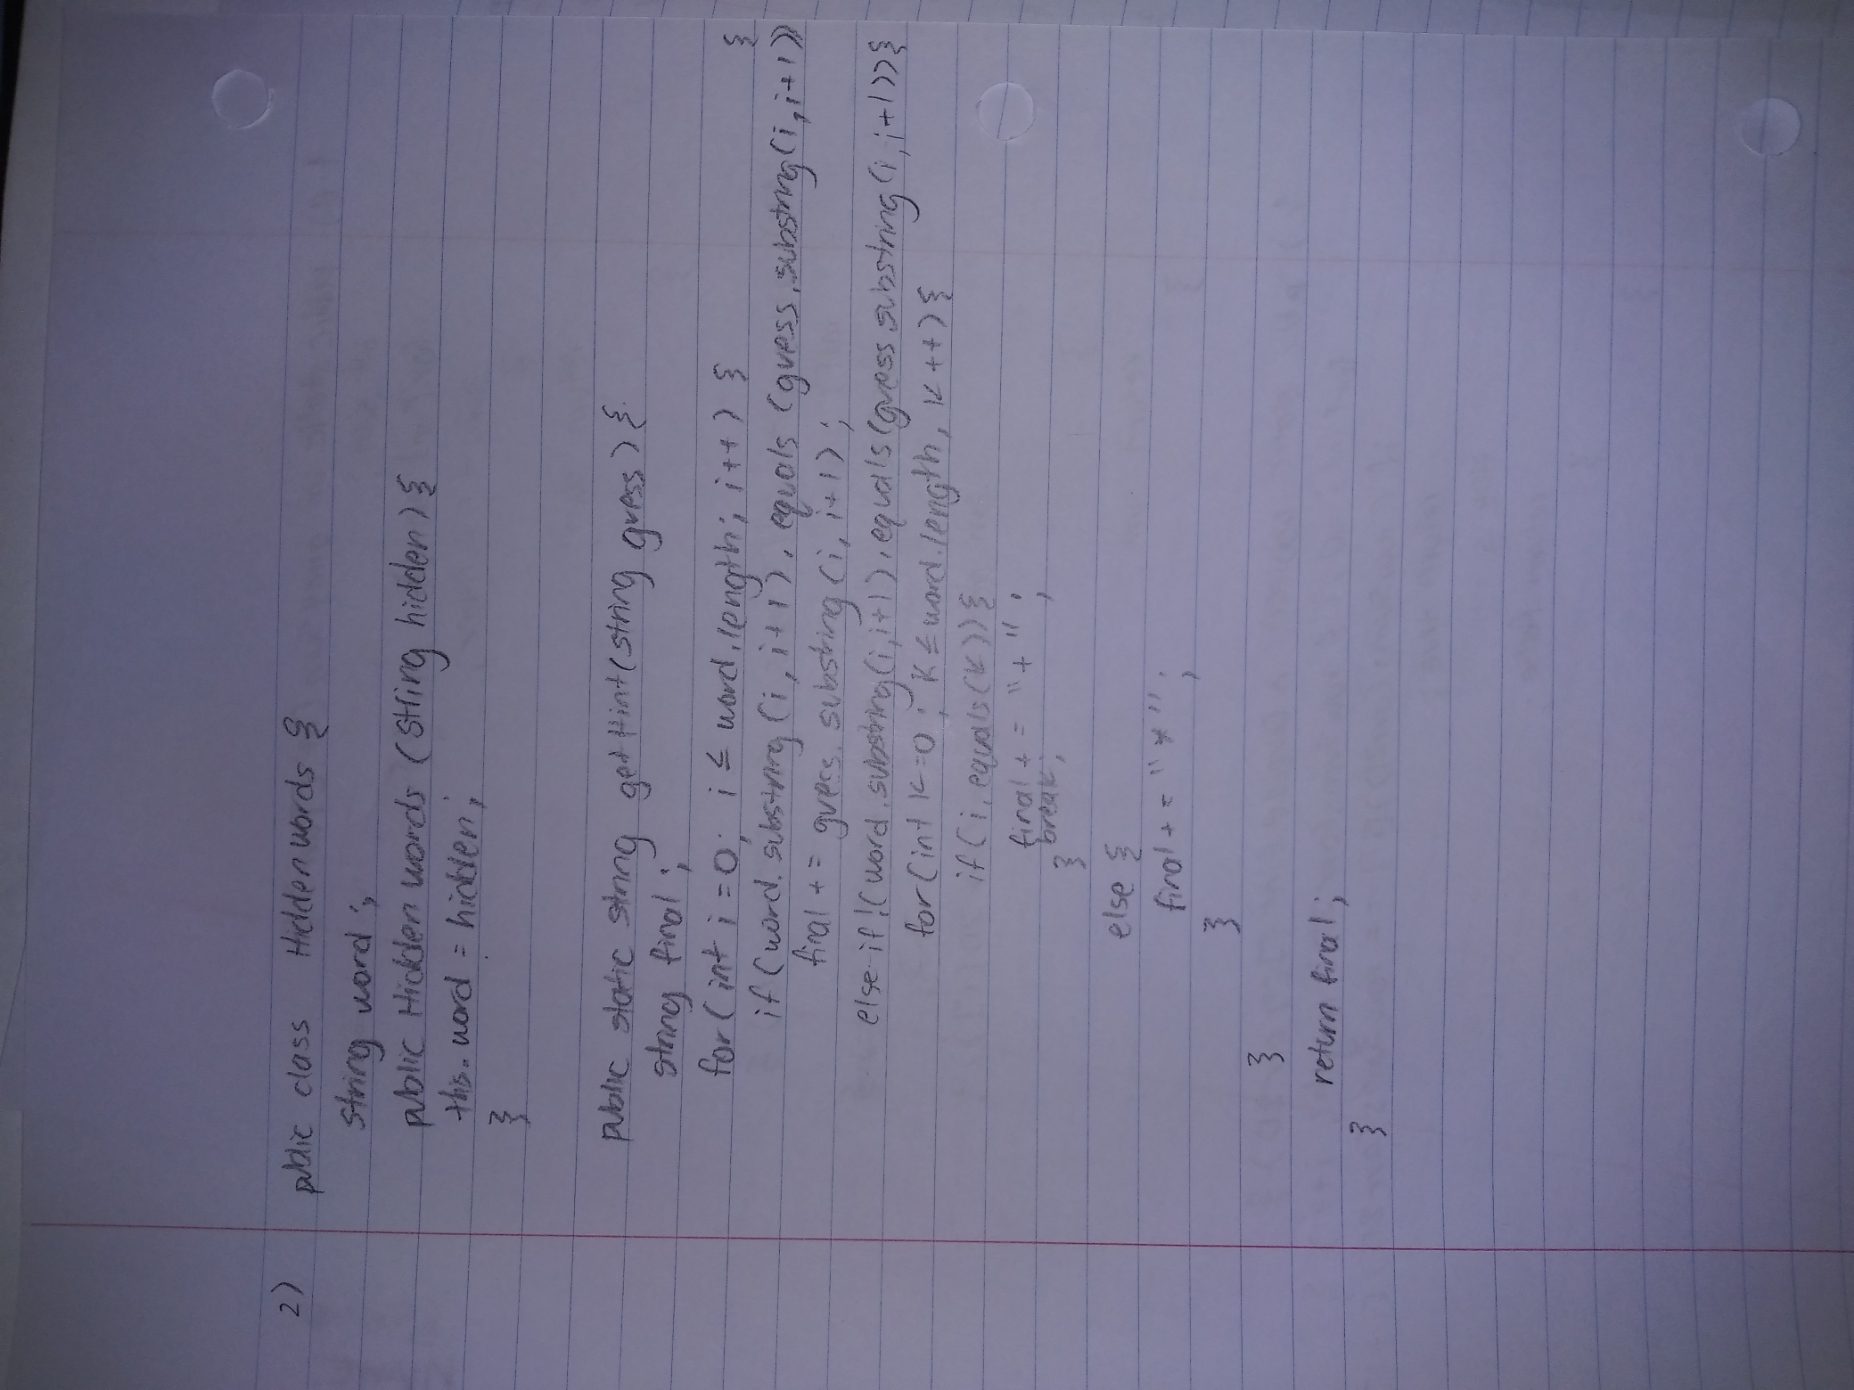 2) public class Hidden words {
string word ;
public Hidden words (String hidden) {
this. word = hidden;
}
public static string getHint(string guess) {
string final ;
for( int i = 0; i ≤ word.length; i++) { {
if (word. substring (i, i+1). equals (guess.substring(i, i+1))
final += guess. substring (i, i+1) ;
else if !( word.substring(i,i+1).equals(guess substring(i, i+1)){
for (int k=0 ; k ≤ word.length, k ++) {
if( i. equals(k)) {
final += "+" ;
break;
}
else {
final += "*" ;
}
}
return final;
}